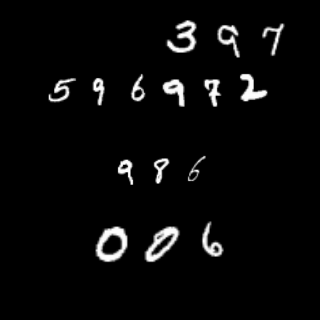 397
596972
986
006